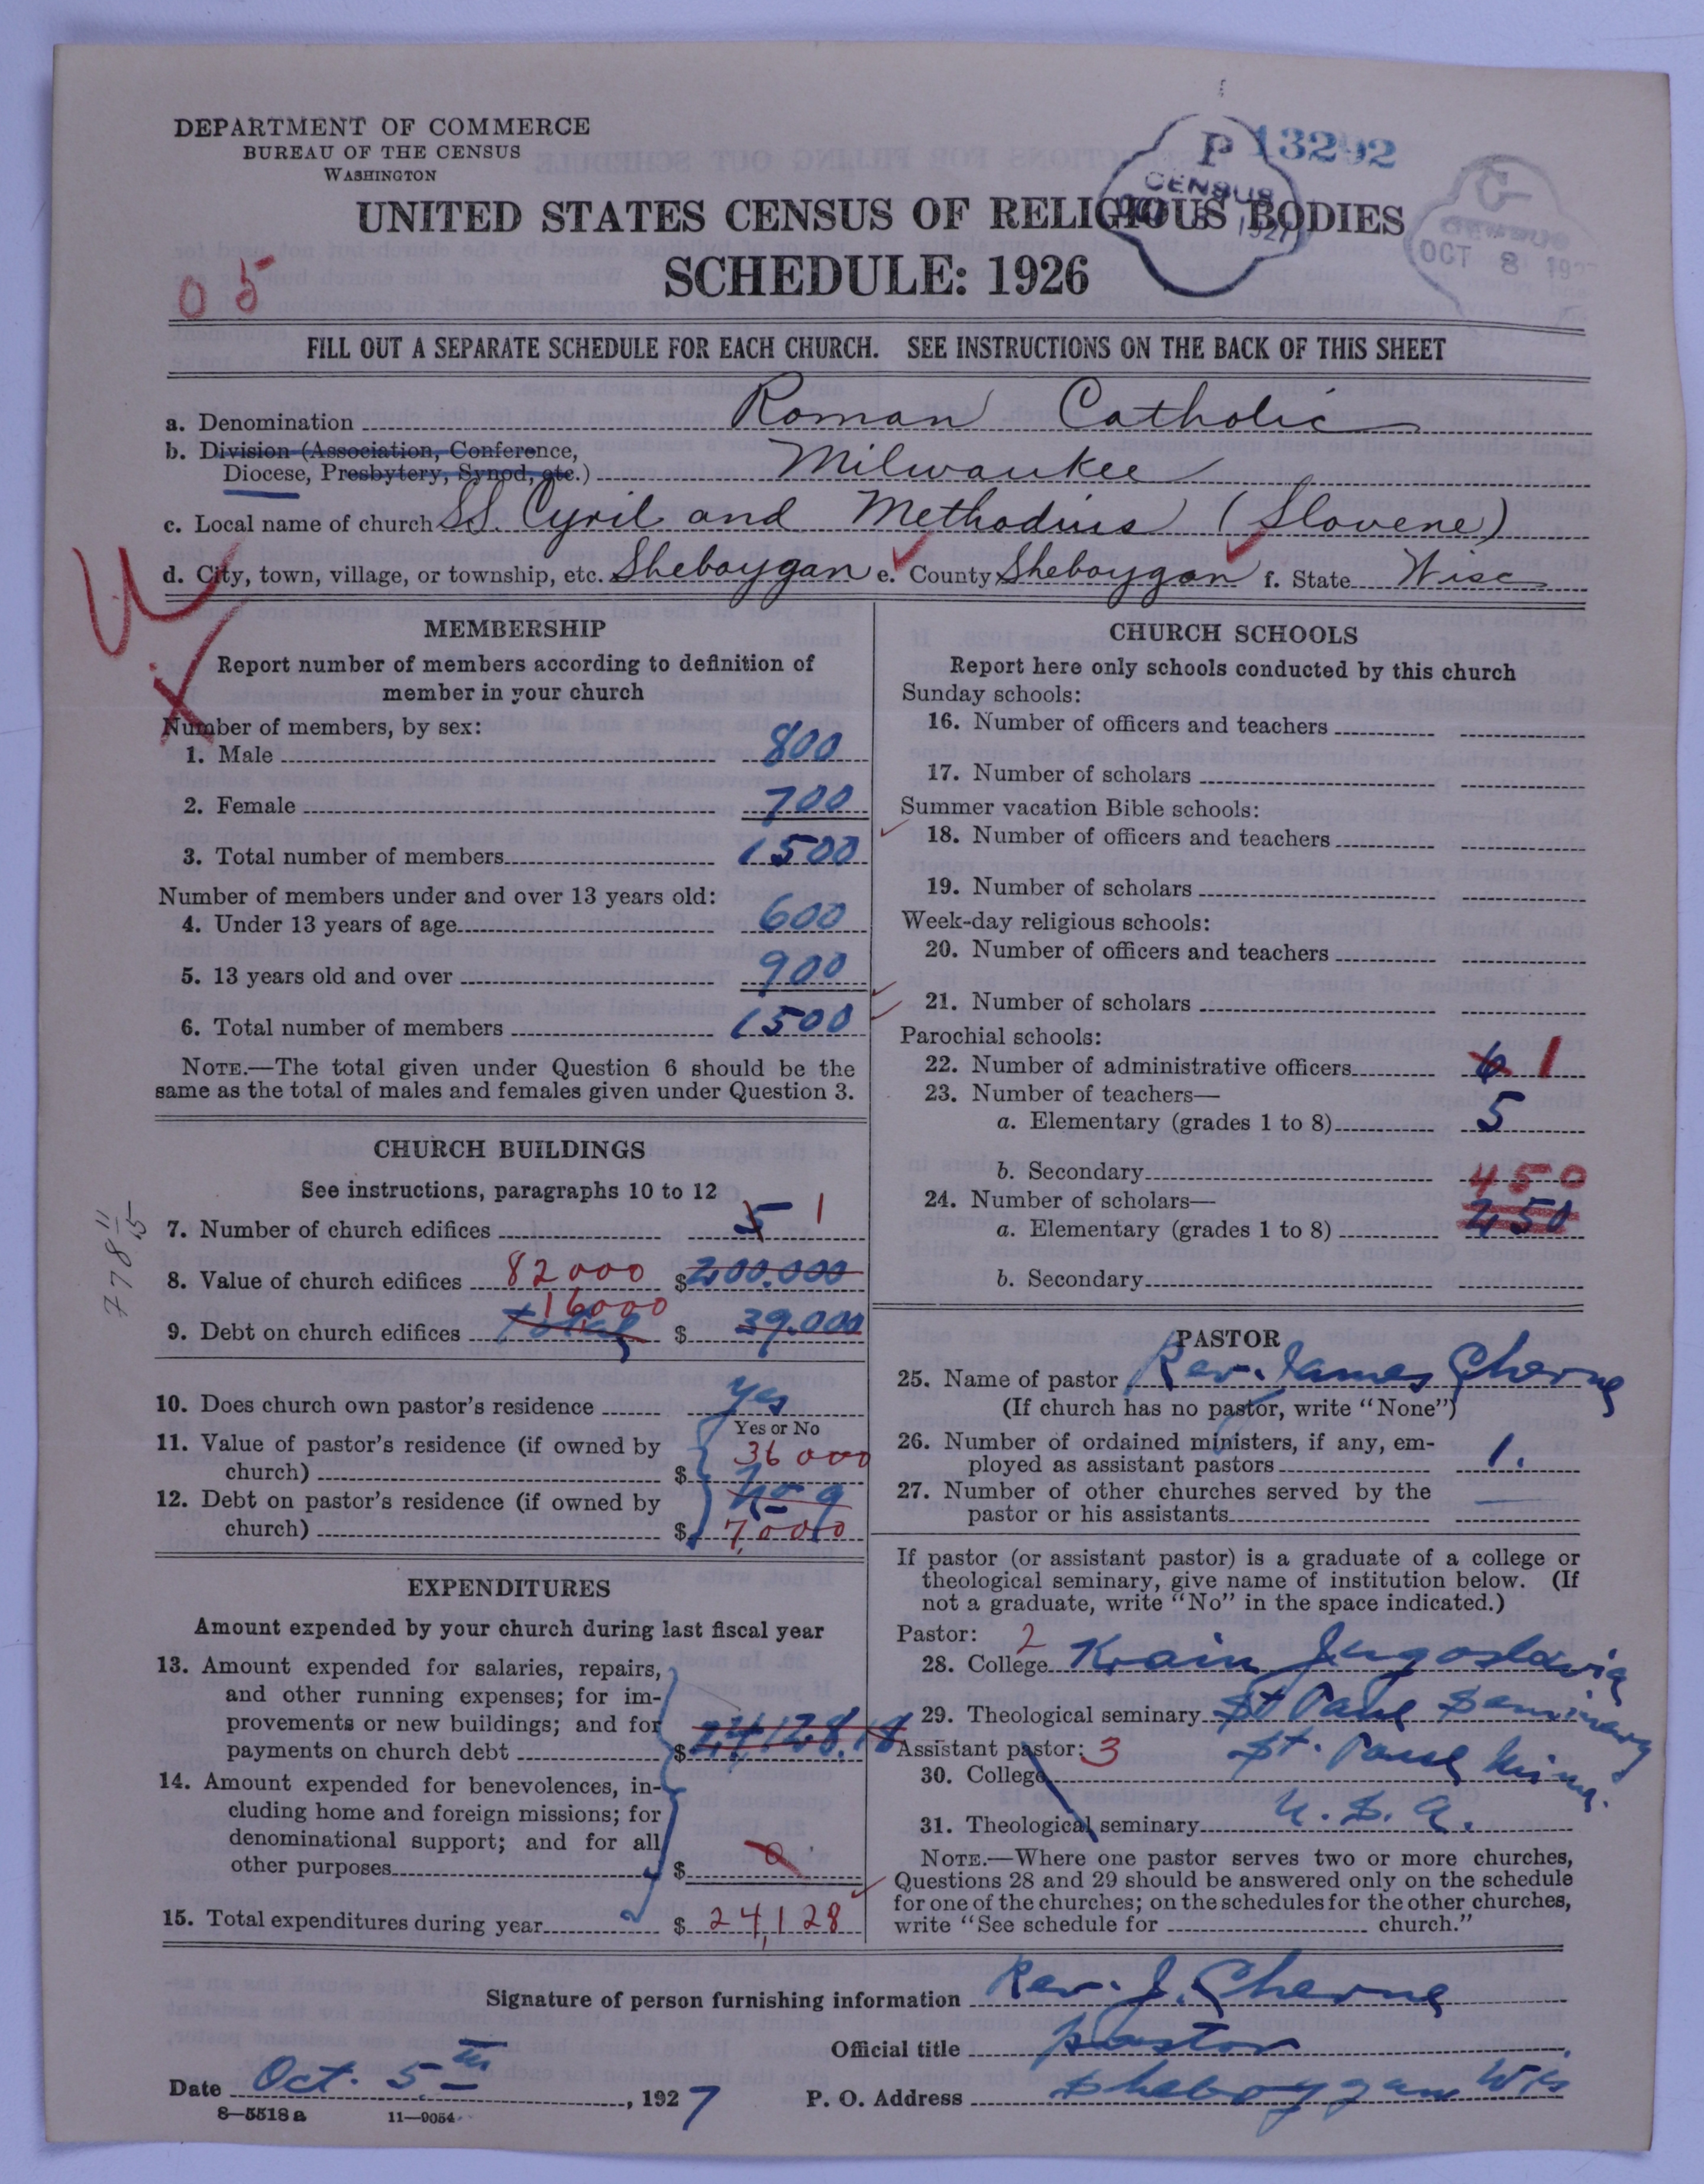 DEPARTMENT OF COMMERCE
BUREAU OF THE CENSUS
WASHINGTON
P 13292
CENSUS
1927
C
CENSUS
OCT 8 192
UNITED STATES CENSUS OF RELIGIOUS BODIES
SCHEDULE: 1926
05
FILL OUT A SEPARATE SCHEDULE FOR EACH CHURCH. SEE INSTRUCTIONS ON THE BACK OF THIS SHEET
a. Denomination Roman Catholic
b. Division (Association, Conference,
Diocese, Presbytery, Synod, etc.) Milwaukee
c. Local name of church SS. Cyril and Methodius (Slovene)
d. City, town, village, or township, etc. Sheboygan e. County Sheboygan f. State Wisc
MEMBERSHIP
Report number of members according to definition of
member in your church
Number of members, by sex:
1. Male 800
2. Female 700
3. Total number of members 1500
Number of members under and over 13 years old:
4. Under 13 years of age 600
5. 13 years old and over 900
6. Total number of members 1500
NOTE.—The total given under Question 6 should be the
same as the total of males and females given under Question 3.
CHURCH BUILDINGS
See instructions, paragraphs 10 to 12
7. Number of church edifices 5 1
8. Value of church edifices 82000 $200.000
16000
9. Debt on church edifices total $ 39.000
778 11/15
10. Does church own pastor's residence yes
Yes or No
11. Value of pastor's residence (if owned by
church) $ 36000
12. Debt on pastor's residence (if owned by
church) $ 7,000
EXPENDITURES
Amount expended by your church during last fiscal year
13. Amount expended for salaries, repairs,
and other running expenses; for im-
provements or new buildings; and for
payments on church debt $ 24,128.18
14. Amount expended for benevolences, in-
cluding home and foreign missions; for
denominational support; and for all
other purposes $ 0
15. Total expenditures during year $ 24,128
CHURCH SCHOOLS
Report here only schools conducted by this church
Sunday schools:
16. Number of officers and teachers
17. Number of scholars
Summer vacation Bible schools:
18. Number of officers and teachers
19. Number of scholars
Week-day religious schools:
20. Number of officers and teachers
21. Number of scholars
Parochial schools:
22. Number of administrative officers 6 1
23. Number of teachers—
a. Elementary (grades 1 to 8) 5
b. Secondary 450
24. Number of scholars—
a. Elementary (grades 1 to 8) 450
b. Secondary
PASTOR
25. Name of pastor Rev. James Cherne
(If church has no pastor, write "None")
26. Number of ordained ministers, if any, em-
ployed as assistant pastors 1.
27. Number of other churches served by the
pastor or his assistants —
If pastor (or assistant pastor) is a graduate of a college or
theological seminary, give name of institution below. (If
not a graduate, write "No" in the space indicated.)
Pastor: 2
28. College Krain Jugoslavia
29. Theological seminary St Paul Seminary
Assistant pastor: 3 St. Paul Minn.
30. College
31. Theological seminary U. S. A.
NOTE.—Where one pastor serves two or more churches,
Questions 28 and 29 should be answered only on the schedule
for one of the churches; on the schedules for the other churches,
write "See schedule for church."
Signature of person furnishing information Rev. J. Cherne
Official title pastor
Date Oct. 5th, 1927 P. O. Address Sheboygan Wis
8—5518a 11—9054